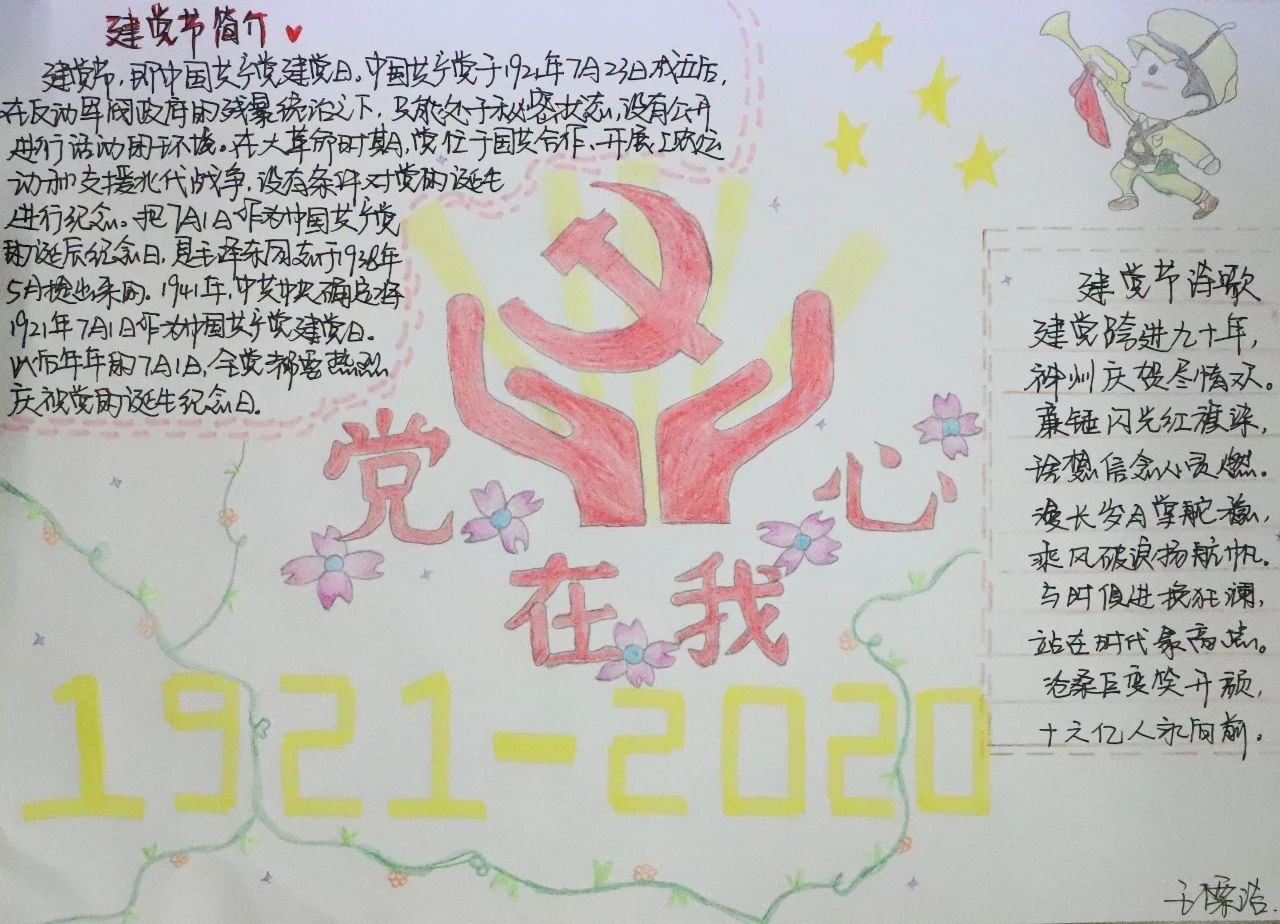 建党节简介
建党节,即中国共产党建党日。中国共产党于1921年7月23日成立后,
在反动军阀政府的残暴统治之下,只能处于秘密状态,没有公开
进行活动的环境。在大革命时期,党忙于国共合作、开展工农运
动和支援北伐战争,没有条件对党的诞生
进行纪念。把7月1日作为中国共产党
的诞辰纪念日,是毛泽东同志于1938年
5月提出来的。1941年,中共中央确定将
1921年7月1日作为中国共产党建党日。
以后年年的7月1日,全党都要热烈
庆祝党的诞生纪念日。
党
心
在我
1921-2020
建党节诗歌
建党跨进九十年,
神州庆贺尽情欢。
镰锤闪光红旗染,
信念心灵燃。
漫长岁月掌舵稳,
乘风破浪扬航帆。
与时俱进挽狂澜,
站在时代最高点。
沧桑巨变笑开颜,
十六亿人永向前。